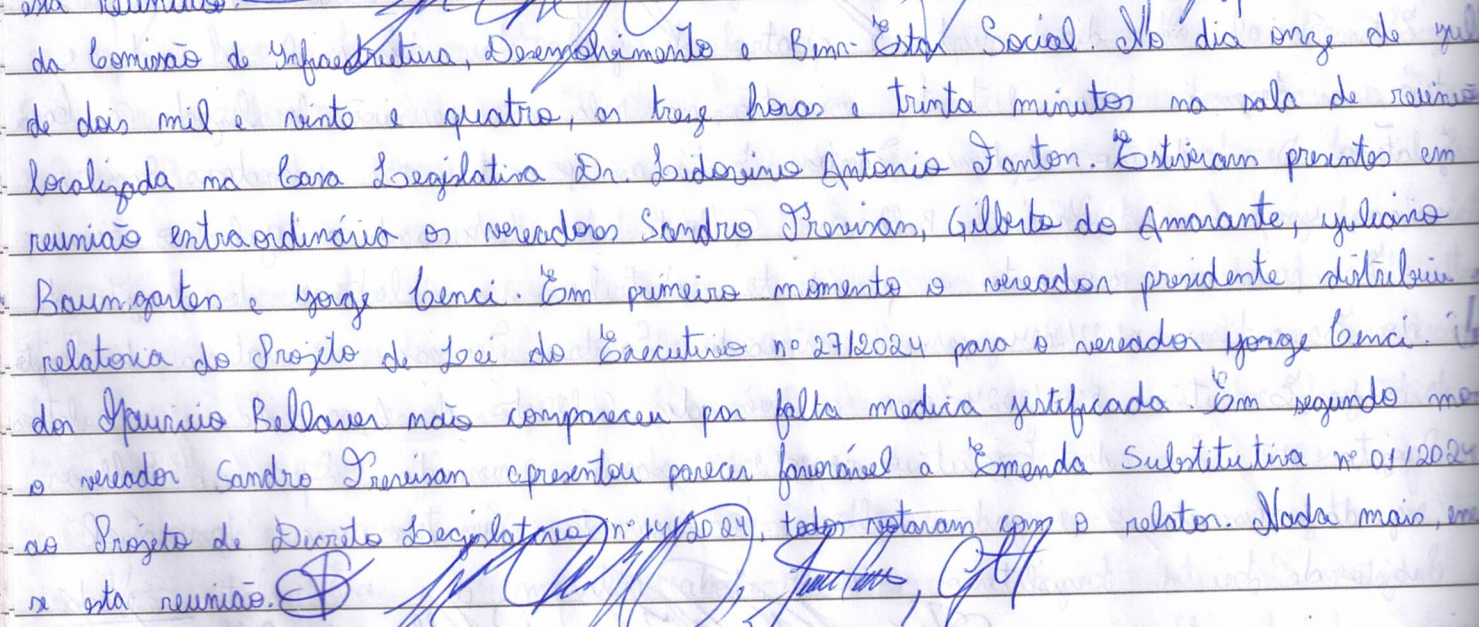 esta reunião.
da Comissão de Infraestrutura, Desenvolvimento e Bem-Estar Social. No dia onze de jul
de dois mil e vinte e quatro, as treze horas e trinta minutos na sala de reunião
localizada na Casa Legislativa Dr. Lidovino Antonio Fanton. Estiveram presentes em
reunião extraordinária os vereadores Sandro Trevisan, Gilberto do Amarante, Juliano
Baumgarten e Jorge Cenci. Em primeiro momento o vereador presidente distribuiu
relatoria do Projeto de Lei do Executivo nº 27/2024 para o vereador Jorge Cenci.
dor Mauricio Bellaver não compareceu por falta medica justificada. Em segundo mo
o vereador Sandro Trevisan apresentou parecer favorável a Emenda Substitutiva nº 01/2024
ao Projeto de Decreto Legislativo nº 14/2024, todos votaram com o relator. Nada mais, enc
se esta reunião.